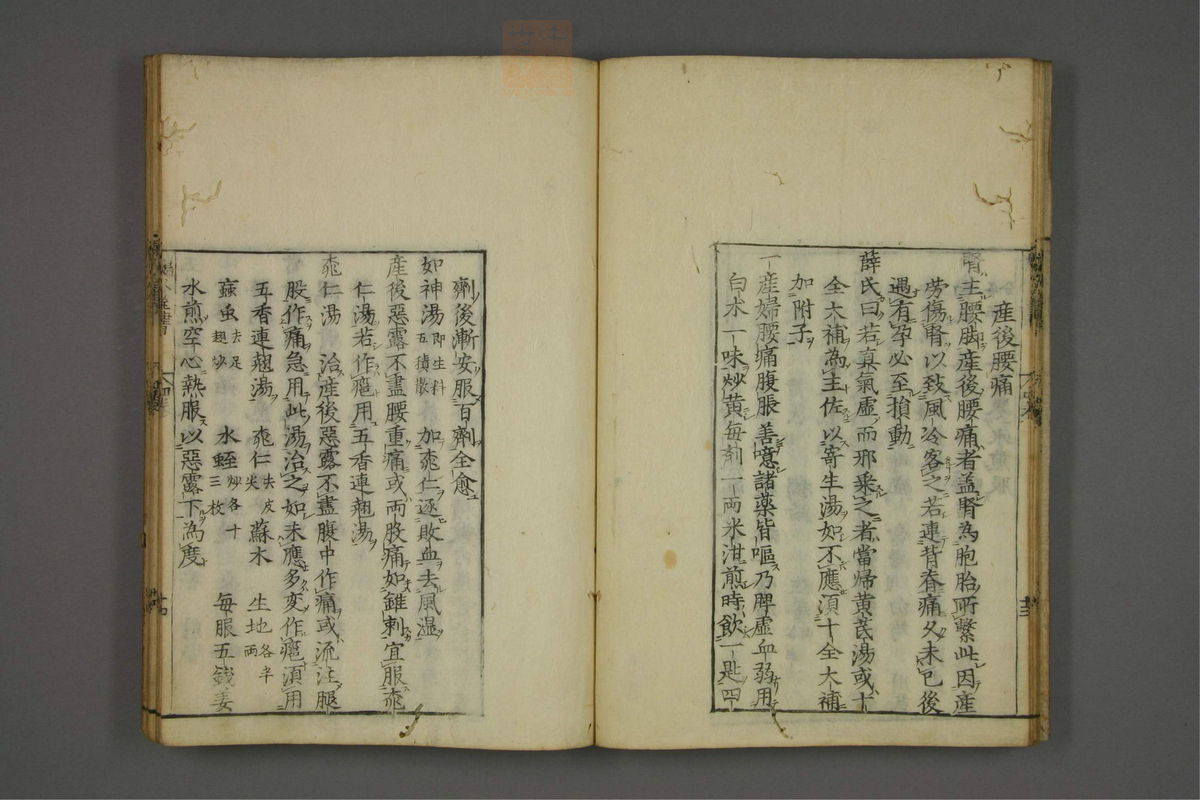 産後腰痛
腎主腰脚産後腰痛者盖腎為胞胎所繫此因産
労傷腎以致風冷客之若連背脊痛久未已後
遇有孕必至損動
薛氏曰若真氣虚而邪乗之者當帰黄芪湯或十
全大補為主佐以寄生湯如不應湏十全大補
加附子
一産婦腰痛腹脹善噫諸薬皆嘔乃脾虚血弱用
白朮一味炒黄每剤一両米泔煎時飲一匙四
劑後漸安服百劑全愈
如神湯 即生料五積散 加桃仁逐敗血去風湿
産後惡露不盡腰重痛或両股痛如錐刺宜服桃
仁湯若作癰用五香連翹湯
桃仁湯 治産後惡露不盡腹中作痛或流注腿
股作痛急用此湯治之如未應多変作癰湏用
五香連翹湯 桃仁 去皮尖 蘇木 生地 各半両
蝱虫 去足翅炒 水蛭 炒各十三枚 每服五錢姜
水煎空心熱服以惡露下為度